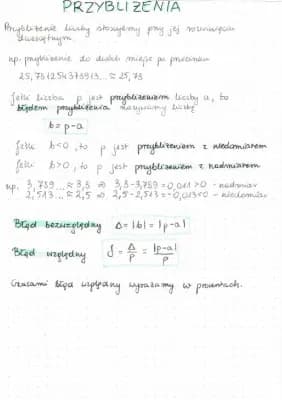 PRZYBLIŻENIA
Przybliżenie liczby stosujemy przy jej rozwinięciu
dziesiętnym.
np. przybliżenie do dwóch miejsc po przecinku
25,731254373913... ≈ 25,73
Jeśli liczba p jest przybliżeniem liczby a, to
błędem przybliżenia nazywamy liczbę
b = p - a
Jeśli b<0, to p jest przybliżeniem z niedomiarem
Jeśli b>0, to p jest przybliżeniem z nadmiarem
np. 3,789... ≈ 3,8 ⇒ 3,8-3,789 = 0,011>0 - nadmiar
2,513... ≈ 2,5 ⇒ 2,5-2,513 = -0,013<0 - niedomiar
Błąd bezwzględny Δ = |b| = |p-a|
Błąd względny δ = Δ/p = |p-a|/p
Czasami błąd względny wyrażamy w procentach.